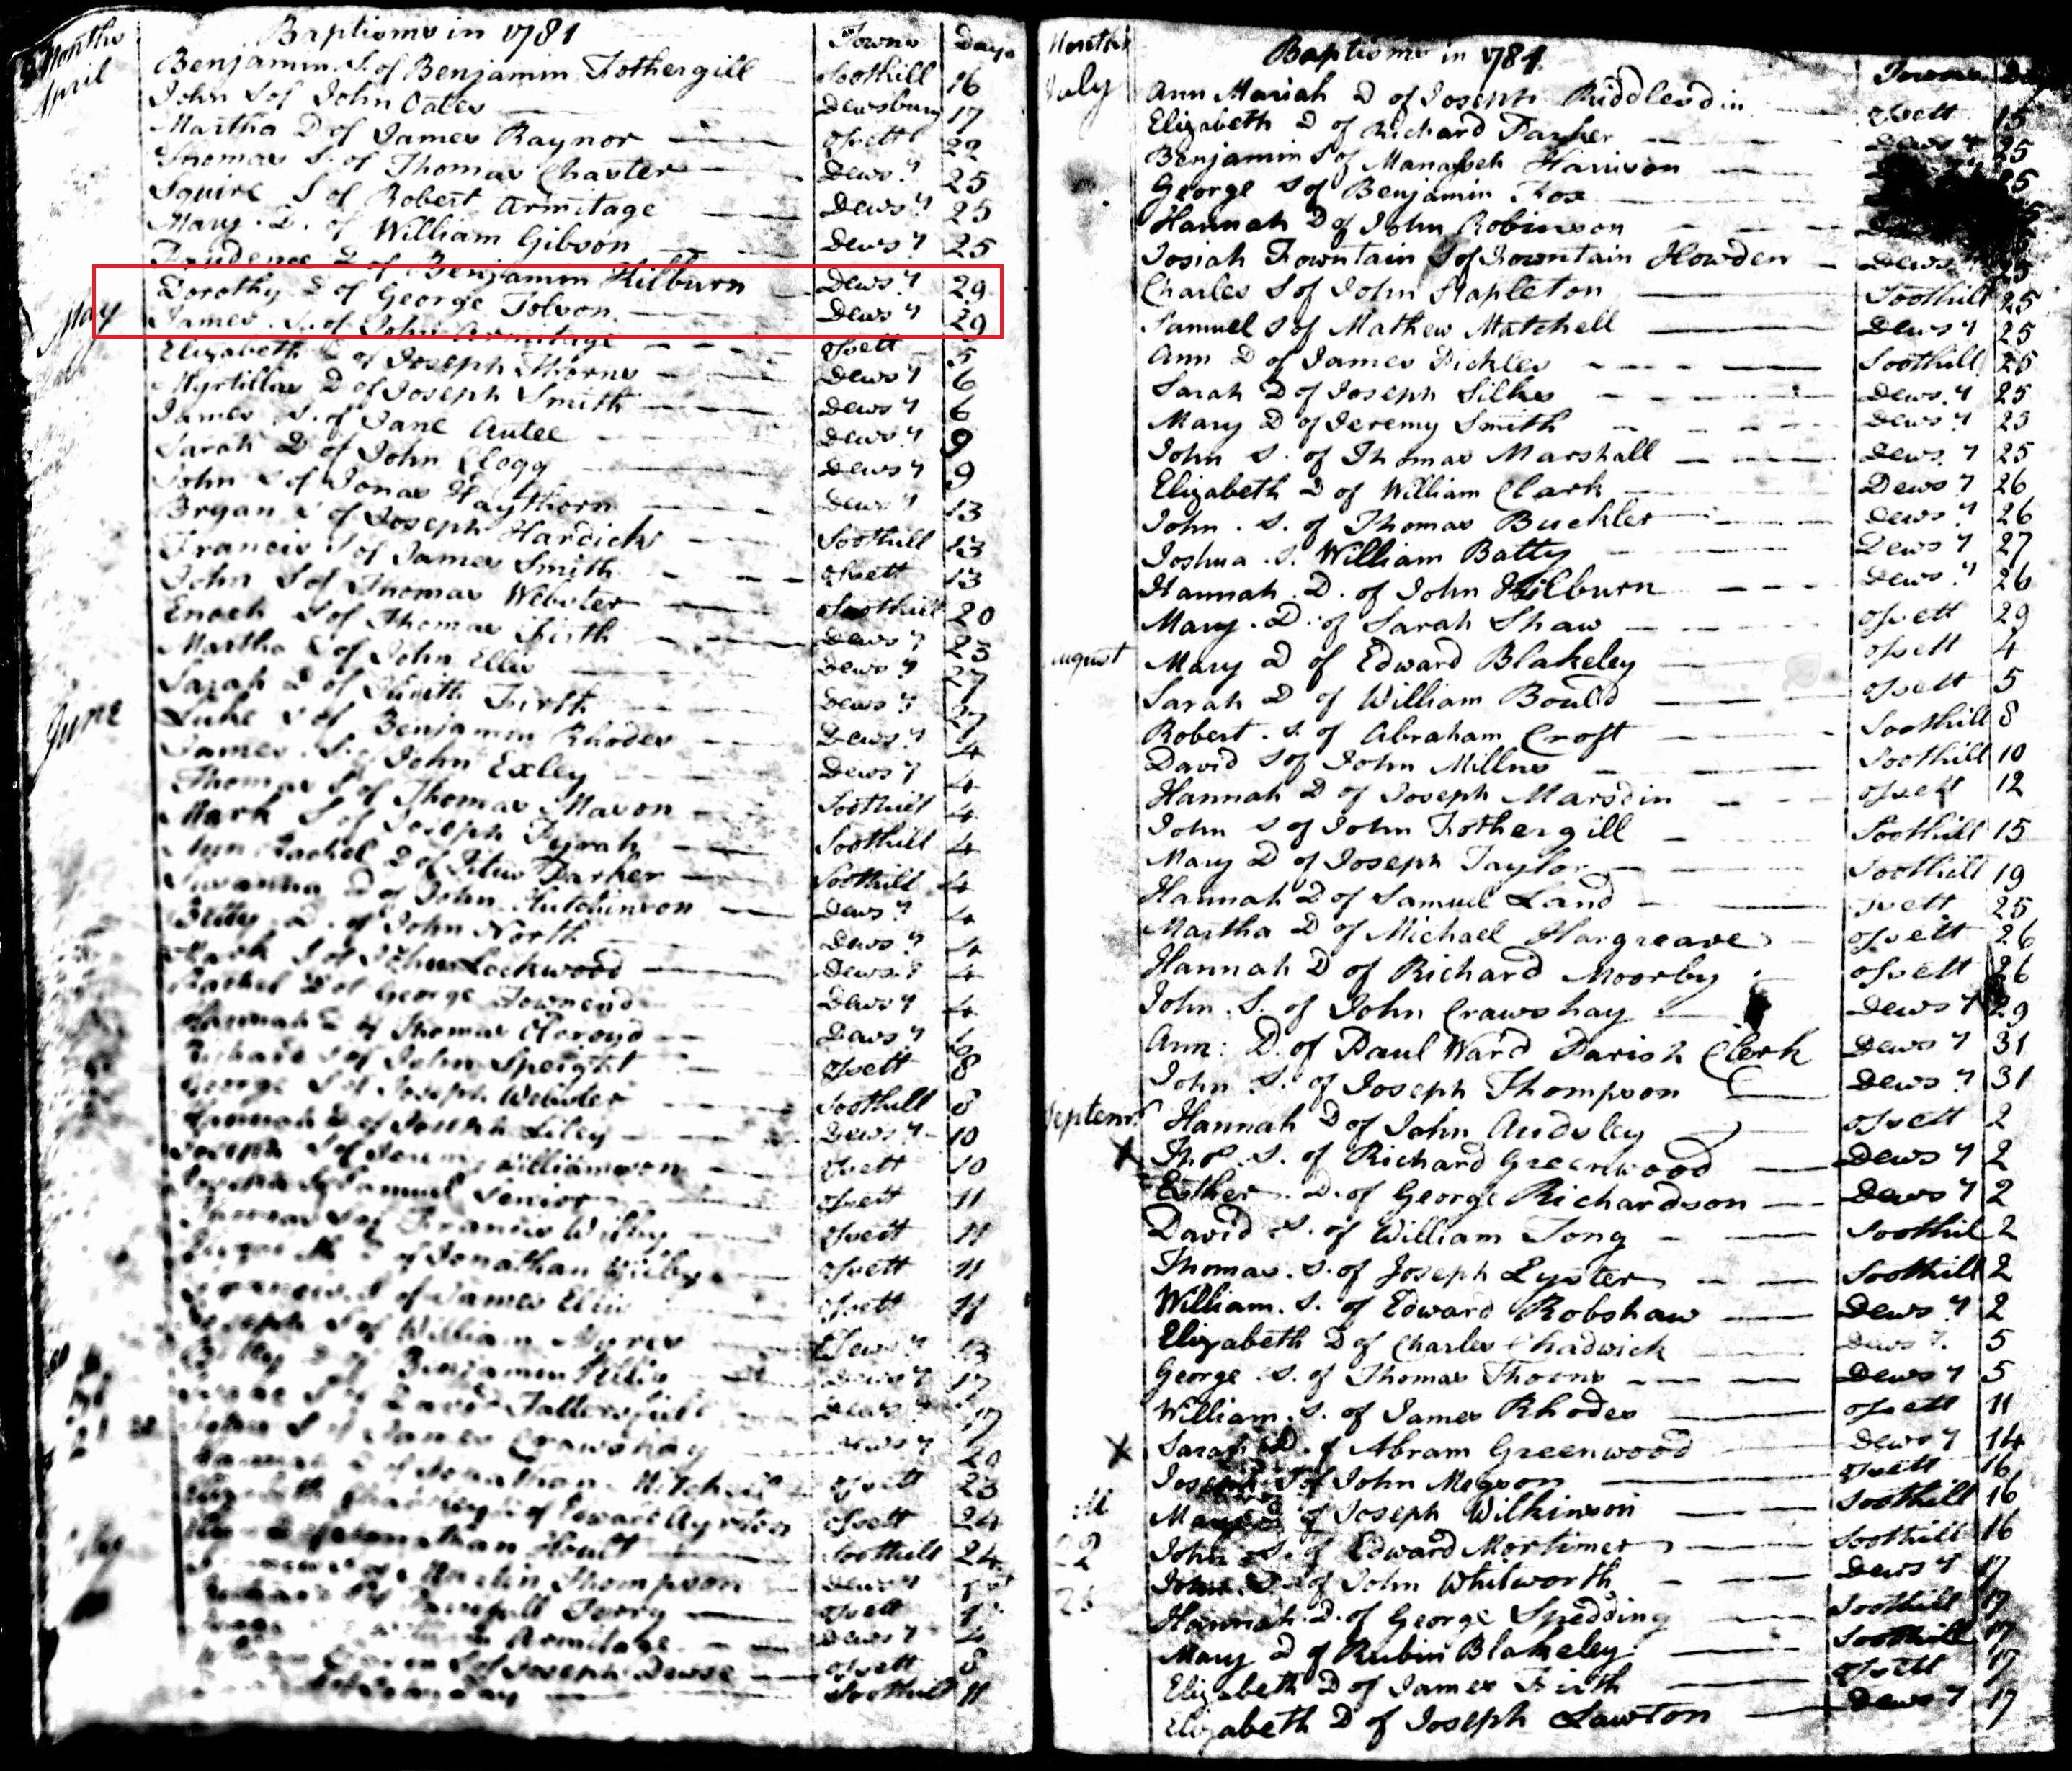 Months Baptisms in 1781 Towns Days
April Benjamin S. of Benjamin Fothergill Soothill 16
John S of John Oates Dewsbury 17
Martha D of James Raynor Ossett 22
Thomas S. of Thomas Chaster Dews.y 25
Squire S of Robert Armitage Dews.y 25
Mary. D. of William Gibson Dews y 25
Prudence D of Benjamin Kilburn Dews.y 29
Dorothy D of George Tolson Dews y 29
May James. S. of John Armitage Ossett 5
Elizabeth D of Joseph Thorns Dews y 6
Myrtilla D of Joseph Smith Dews y 6
James S. of Jane Autee Dews y 9
Sarah D of John Clegg Dews y 9
John S of Jonas Haythorn Dews y 13
Bryan S of Joseph Hardick Soothill 13
Francis S of James Smith Ossett 13
John S of Thomas Webster Soothill 20
Enoch S of Thomas Firth Dews y 23
Martha D of John Ellis Dews y 27
Sarah D of Firth Dews y 27
June Luke S of Benjamin Rhodes Dews y 4
James. S. of John Exley Dews y 4
Thomas S of Thomas Mason Soothill 4
Mark S of Joseph Soothill 4
Ann Rachel D of Titus Parker Soothill 4
Susanna D of John Hutchinson Dews y 4
Betty. D. of John North Dews y 4
Mark S of John Lockwood Dews y 4
Rachel D of George Townend Dews y 4
Hannah D of Thomas Dews y 6
Richard S of John Speight Ossett 8
George S of Joseph Webster Soothill 8
Hannah D of Joseph Liley Dews y 10
Joseph S of Williamson Ossett 10
Samuel Senior Ossett 11
Thomas S of Francis Wilby Ossett 11
D of Jonathan Wilby Ossett 11
Francis. S of James Ellis Ossett 11
Joseph S of William Dews y 13
Betty D of Benjamin Dews y 17
S of David 17
John S of James Crawshay Dews y 20
Hannah D of Jonathan Mitchell Ossett 23
Elizabeth D of Edward Ayrton Ossett 24
D of Jonathan Hoult Soothill 24
of Martin Thompson Dews y
Terry Ossett
Armitage Dews y
S of Joseph Dewse Ossett 8
Soothill 11
Months Baptisms in 1781 Towns
July Ann Mariah D of Joseph Riddlesdin Ossett 15
Elizabeth D of Richard Parker Dews y 25
Benjamin S of Manasseh Harrison 25
George S of Benjamin Fox
Hannah D of John Robinson
Josiah Fowntain S of Fowntain Howden Dews 25
Charles S of John Stapleton Soothill 25
Samuel S of Mathew Mitchell Dews y 25
Ann D of James Pickles Soothill 25
Sarah D of Joseph Silkes Dews.y 25
Mary D of Jeremy Smith Dews y 25
John S. of Thomas Marshall Dews. y 25
Elizabeth D of William Clark Dews y 26
John. S. of Thomas Buckler Dews y 26
Joshua. S. William Batty Dews y 27
Hannah. D. of John Kilburn Dews.y 26
Mary. D. of Sarah Shaw Ossett 29
August Mary D of Edward Blakeley Ossett 4
Sarah D of William Bould Ossett 5
Robert. S. of Abraham Croft Soothill 8
David S of John Millns Soothill 10
Hannah D of Joseph Marsdin Ossett 12
John S of John Fothergill Soothill 15
Mary D of Joseph Taylor Soothill 19
Hannah D of Samuel Land Ossett 25
Martha D of Michael Hargreaves Ossett 26
Hannah D of Richard Moorby Ossett 26
John. S. of John Crawshay Dews y 29
Ann: D. of Paul Ward Parish Clerk Dews y 31
John S. of Joseph Thompson Dews.y 31
Septemr Hannah D of John Audsley Ossett 2
X Thos. S. of Richard Greenwood Dews y 2
Esther. D. of George Richardson Dews y 2
David S. of William Tong Soothil 2
Thomas. S. of Joseph Lyster Soothill 2
William. S. of Edward Robshaw Dews y 2
Elizabeth D of Charles Chadwick Dews y. 5
George S. of Thomas Thorns Dews y 5
William. S. of James Rhodes Ossett 11
X Sarah D. of Abram Greenwood Dews y 14
Joseph S of John Megson Ossett 16
Mary D of Joseph Wilkinson Soothill 16
22 John S. of Edward Mortimer Soothill 16
23 John. S of John Whitworth Dews y 17
Hannah. D. of George Spedding Soothill 17
Mary D of Rubin Blakeley Soothill 17
Elizabeth D of James Firth Ossett 17
Elizabeth D of Joseph Lawton Dews y 17